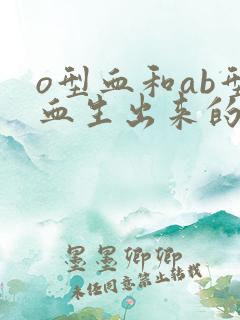 o型血和ab型
血生出来的
墨墨卿卿
未经同意禁止转载